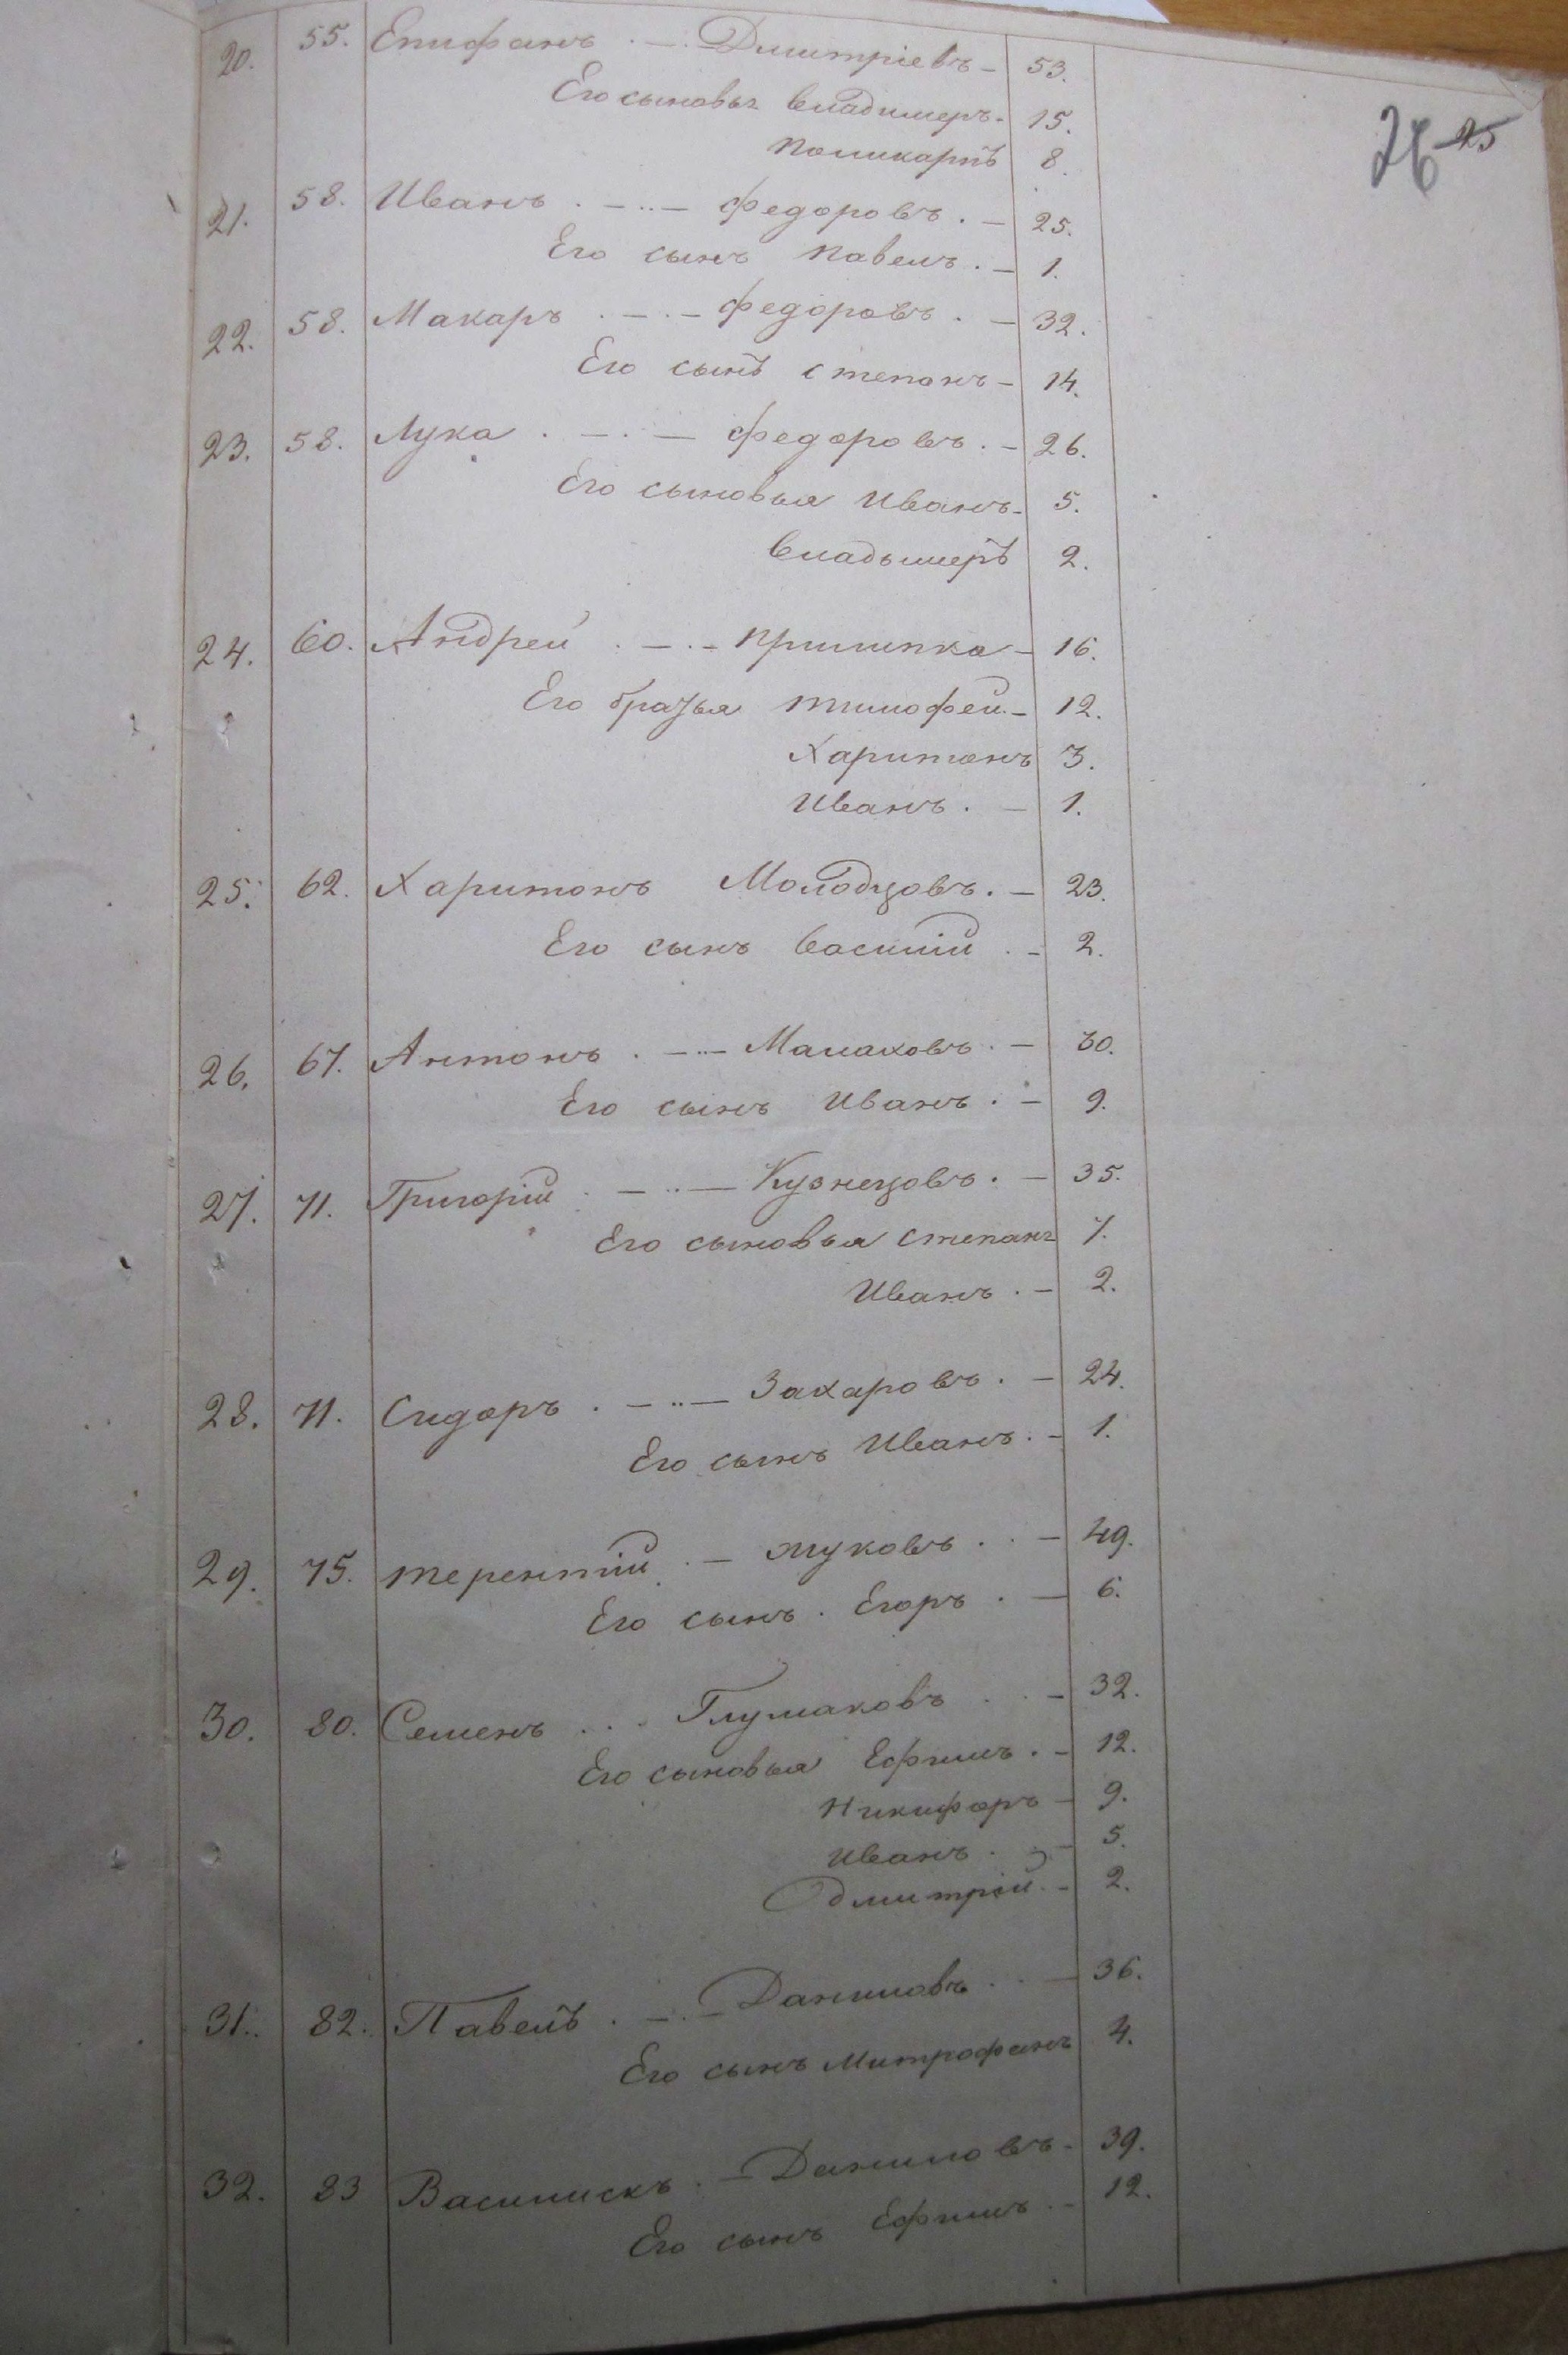 26 25
20. 55. Епифанъ . — . Дмитріевъ — 53.
Его сыновья Владимеръ . 15.
Поликарпъ 8.
21. 58. Иванъ . — .. — Федоровъ . — 25.
Его сынъ Павелъ . — 1.
22. 58. Макаръ . — . — Федоровъ . — 32.
Его сынъ Степанъ — 14.
23. 58. Лука . — . — Федоровъ . — 26.
Его сыновья Иванъ — 5.
Владымеръ 2.
24. 60. Андрей . — . — — 16.
Его братья Тимофей . — 12.
Харитонъ 3.
Иванъ . — 1.
25. 62. Харитонъ Молодцовъ . — 23.
Его сынъ Василій . — 2.
26. 67. Антонъ . — .. — Малаховъ . — 30.
Его сынъ Иванъ . — 9.
27. 71. Григорій . — .. — Кузнецовъ . — 35.
Его сыновья Степанъ 7.
Иванъ . — 2.
28. 71. Сидоръ . — .. — Захаровъ . — 24.
Его сынъ Иванъ . — 1.
29. 75. Терентій . — Жуковъ . . — 49.
Его сынъ . Егоръ . — 6.
30. 80. Семенъ . . . Глумаковъ . . — 32.
Его сыновья Ефимъ . — 12.
Никифоръ — 9.
Иванъ . — 5.
Дмитрій . — 2.
31. 82. Павелъ . — . — Даниловъ . . — 36.
Его сынъ Митрофанъ 4.
32. 83 Василискъ . — Даниловъ — 39.
Его сынъ Ефимъ . — 12.